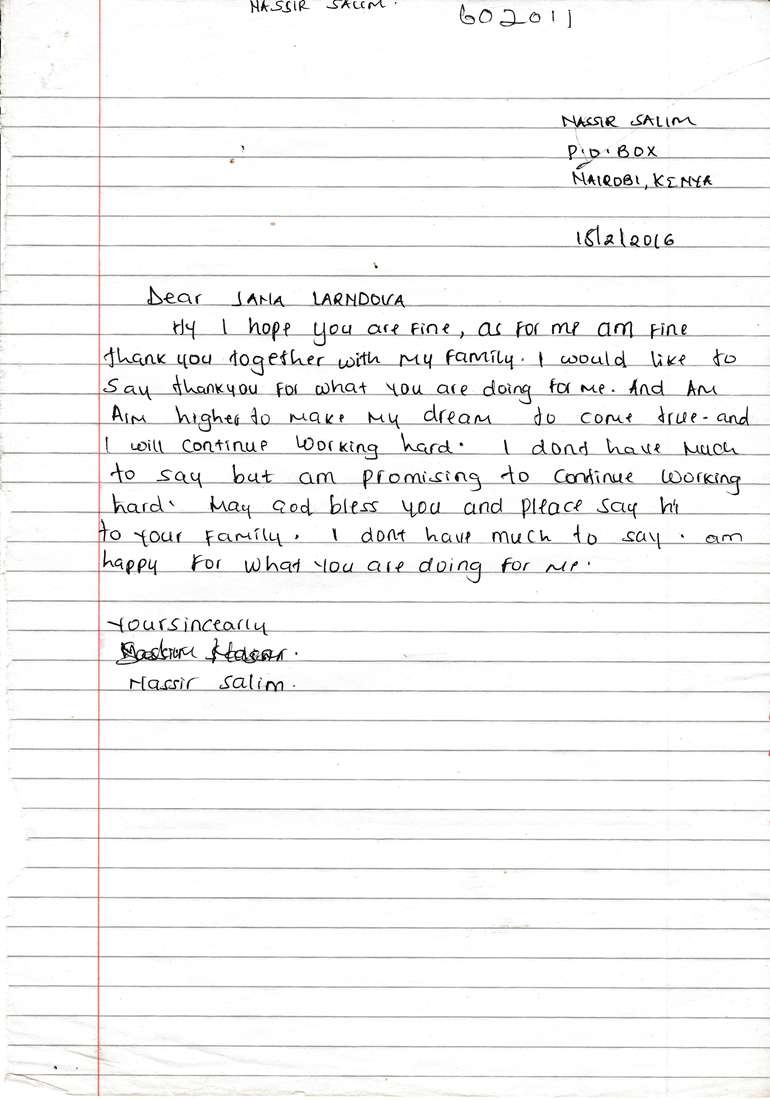 NASSIR SALIM.
602011
NASSIR SALIM
P.O. BOX
NAIROBI, KENYA
18/2/2016
Dear JANA LARNDOVA
Hy I hope you are fine, as for me am fine
thank you together with my family. I would like to
say thankyou for what you are doing for me. And Am
Aim higher to make my dream to come true - and
I will continue working hard. I dont have much
to say but am promising to continue working
hard. May god bless you and pleace say hi
to your family. I dont have much to say. am
happy for what you are doing for me.
Yoursincearly
Nassir Salim.